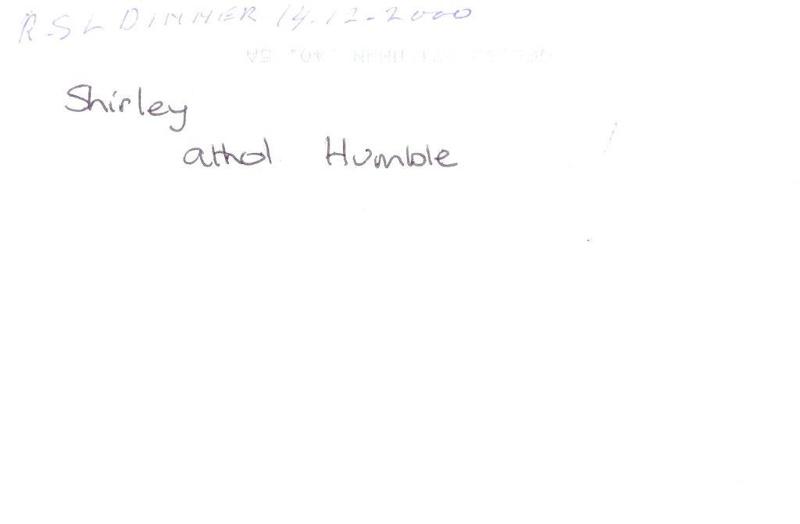 RSL DINNER 14.12-2000
Shirley
athol Humble